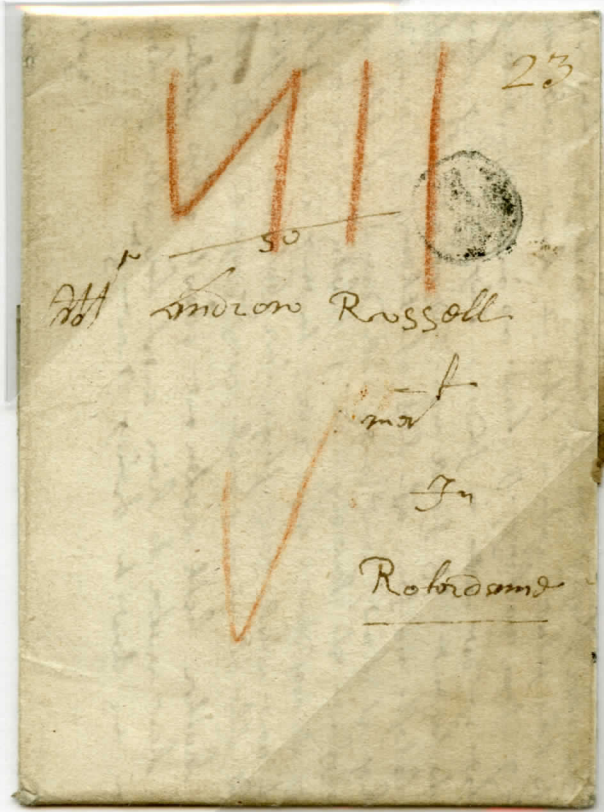 23
VIII
50
Mr Andrew Russell
mert
In
Roterdame
V